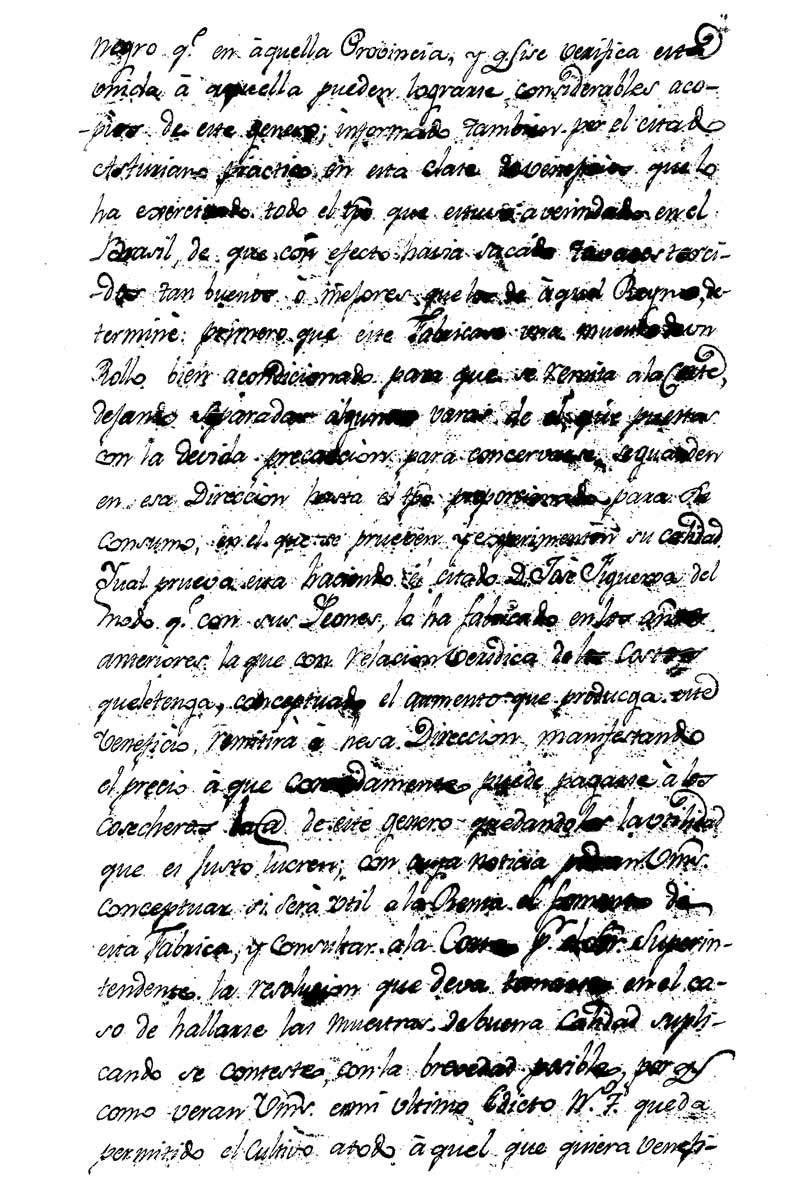 negro q.e en àquella Provincia, y q.e si se verifica esta
vnida à aquella pueden lograrse considerables aco-
-pios de este genero; informado tambien por el citado
Asturiano practico en esta clase de veneficios que lo
ha exercitado todo el tpõ que estuvo aveindado en el
Brasil, de que con efecto havia sacado tavacos torci-
-dos tan buenos ò mejores que los de àquel Reyno, de-
terminè: primero que este Fabricase una muestra de un
Rollo bien acondicionado para que se remita a la Corte,
dejando separadas algunas varas de el que puestas
con la devida precaucion para concervarse, se guarden
en esa Direccion hasta el tpõ proporcionado para su
consumo, en el que se prueven y experimenten su calidad
Jual prueva esta haciendo el citado D. Jose Figueroa del
modo q.e con sus Peones, lo ha fabricado en los años
anteriores la que con relacion veridica de los Costos
que le tenga, conceptuado el aumento que producga este
Veneficio, remitirà à hesa Direccion manifestando
el precio à que comodamente puede pagarse à los
cosecheros la @ de este genero quedandoles la vtilidad
que es justo lucren; con cuya noticia podran Vms.
conceptuar si serà vtil a la Renta el fomento de
esta Fabrica, y Consultar a la Corte p.r el Sr. Superin-
tendente la resolucion que deva tomarse en el ca-
so de hallarse las muestras de buena calidad supli-
cando se conteste, con la brevedad posible, por q.e
como veran Vms. en mi vltimo Edicto N.º 7. queda
permitido el Cultivo a todo àquel que quiera venefi-